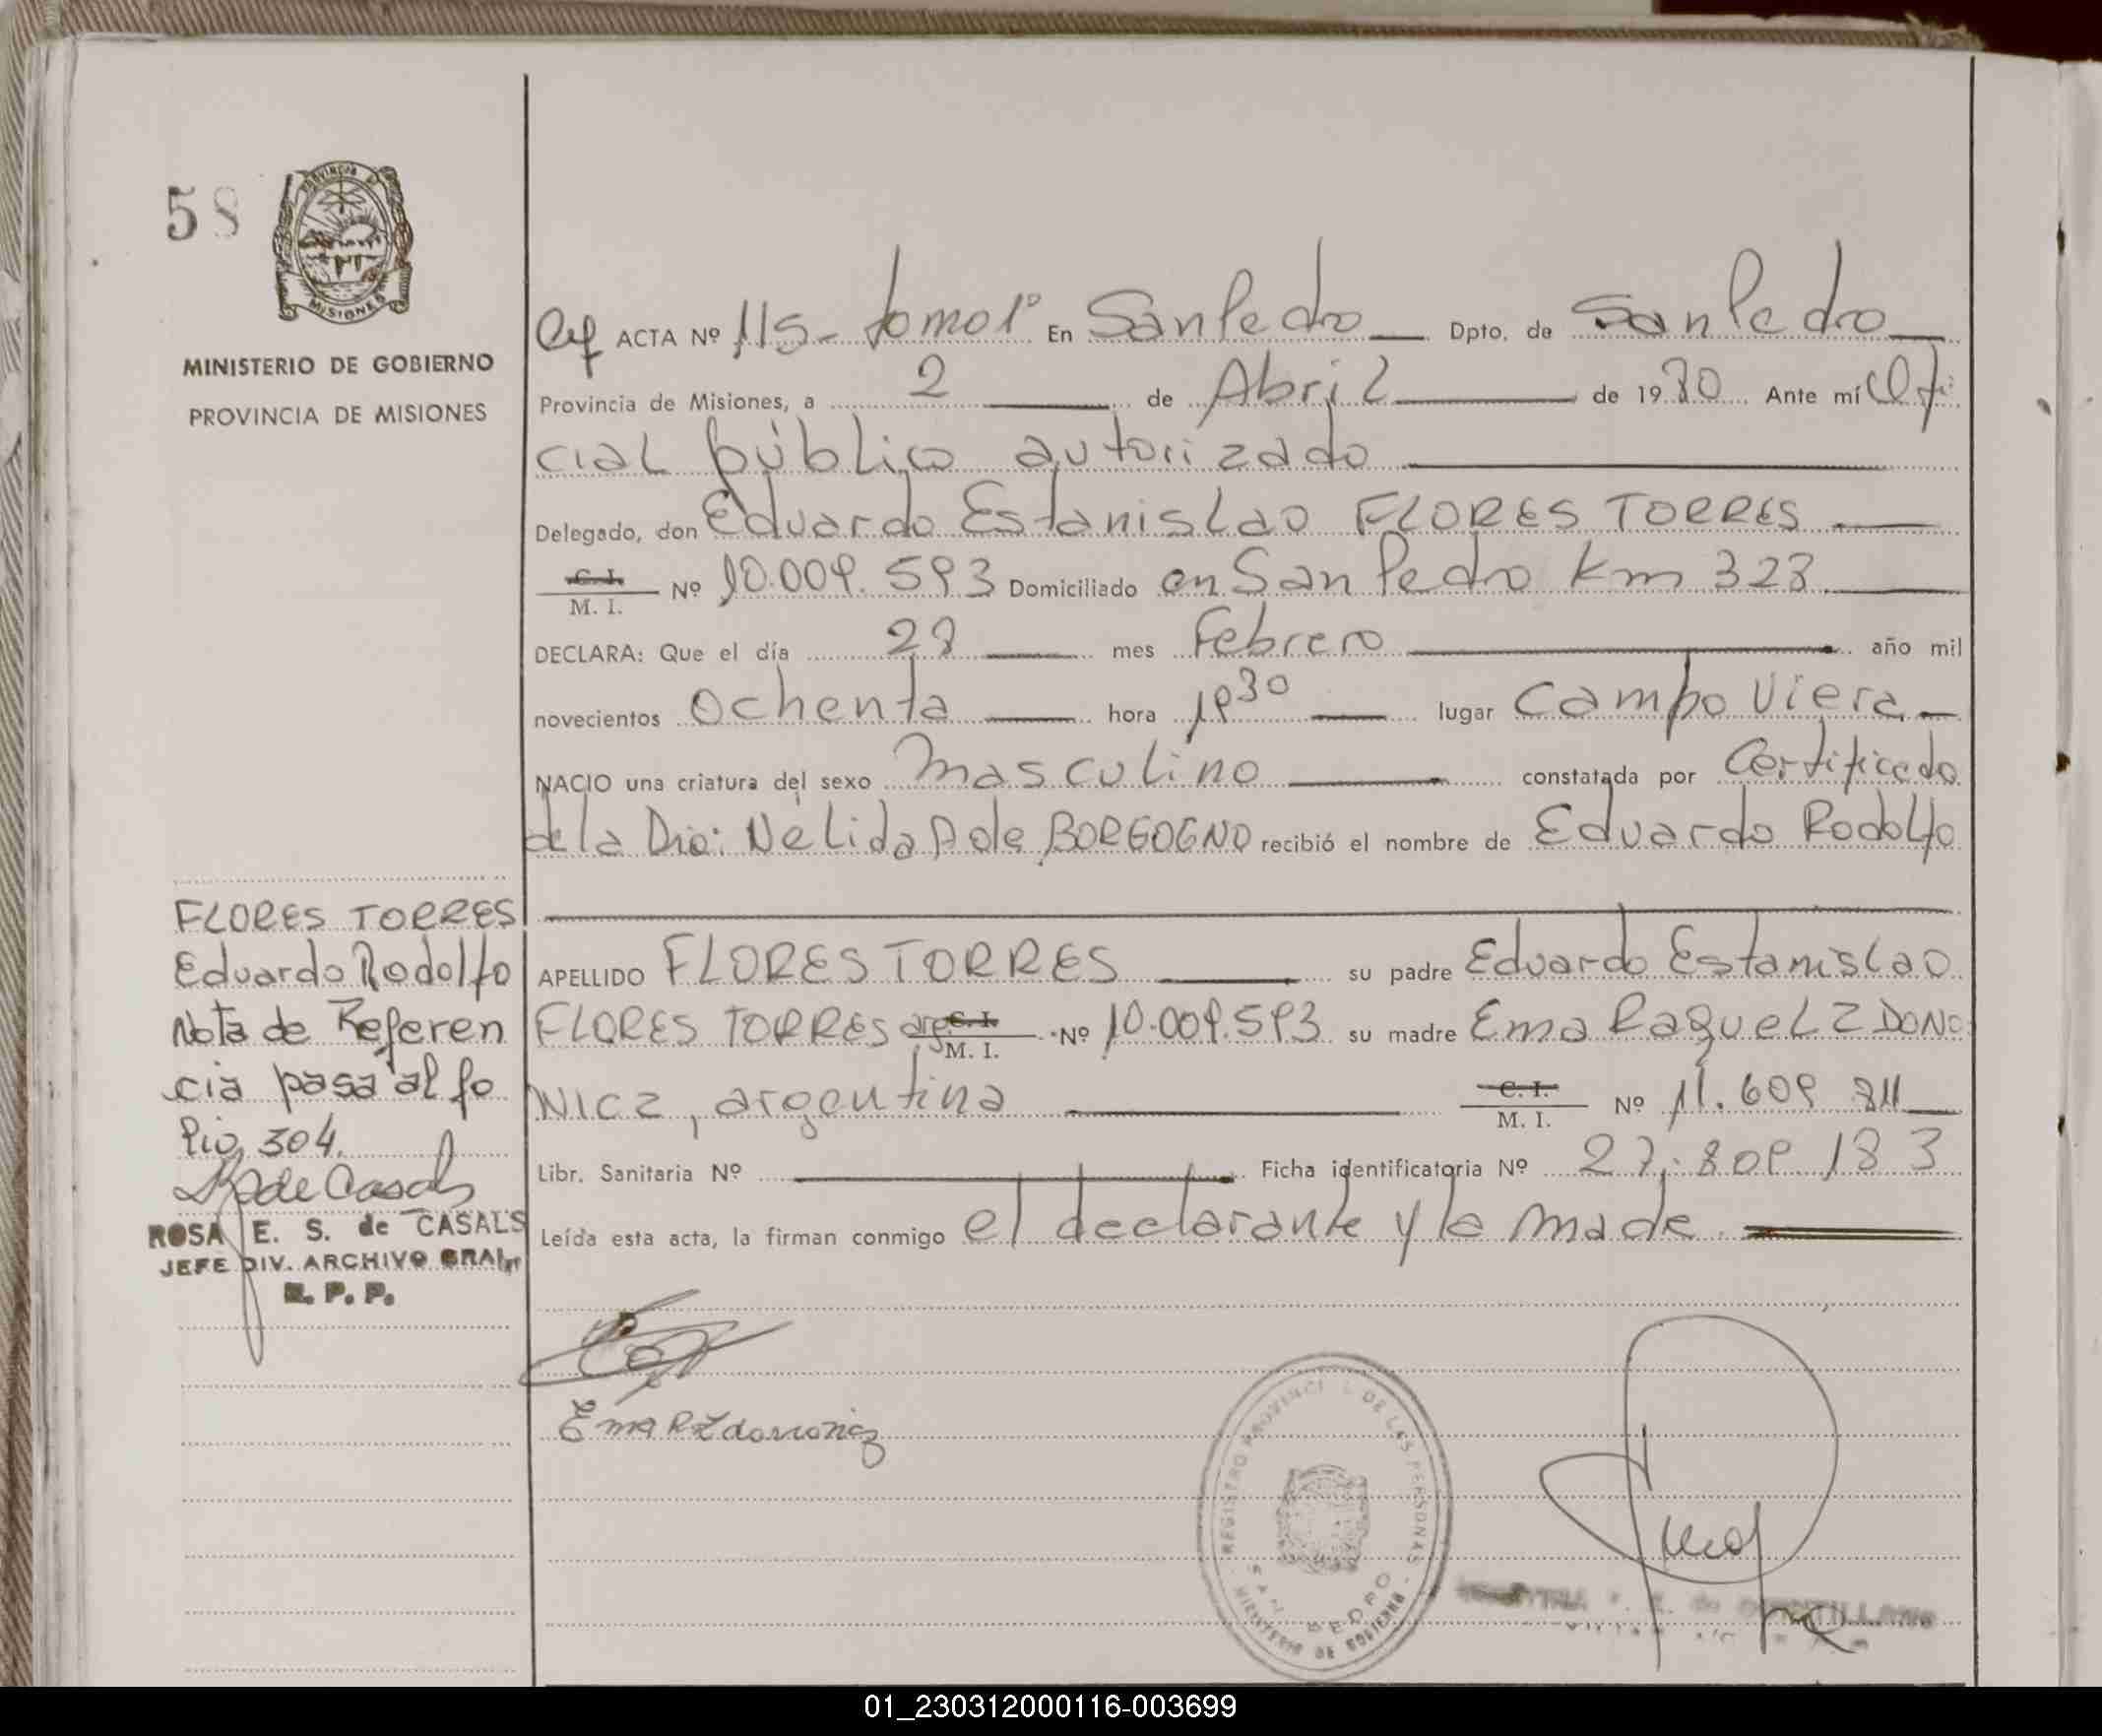 58
PROVINCIA D
MISIONES
MINISTERIO DE GOBIERNO
PROVINCIA DE MISIONES
FLORES TORRES
Eduardo Rodolfo
Nota de Referen
cia pasa al fo
lio 304.
de Casals
ROSA E. S. de CASALS
JEFE DIV. ARCHIVO GRAL.
R. P. P.
ACTA Nº 115- tomo 1º En San Pedro Dpto. de San Pedro
Provincia de Misiones, a 2 de Abril de 1980 Ante mí Ofi
cial público autorizado
Delegado, don Eduardo Estanislao FLORES TORRES
C. I.
M. I. Nº 10.009.593 Domiciliado en San Pedro Km 323
DECLARA: Que el día 28 mes Febrero año mil
novecientos Ochenta hora 1930 lugar Campo Viera
NACIO una criatura del sexo masculino constatada por Certificado
de la Nélida A de BORGOGNO recibió el nombre de Eduardo Rodolfo
APELLIDO FLORES TORRES su padre Eduardo Estanislao
FLORES TORRES arg. C. I.
M. I. Nº 10.009.593 su madre Ema Raquel ZDONO
NICZ, argentina C. I.
M. I. Nº 11.609 811
Libr. Sanitaria Nº Ficha identificatoria Nº 27.809 183
Leída esta acta, la firman conmigo el declarante y la madre.
Ema R Zdononicz
REGISTRO PROVINCI L DE LAS PERSONAS
SAN PEDRO
MINISTERIO DE GOBIERNO
01_230312000116-003699